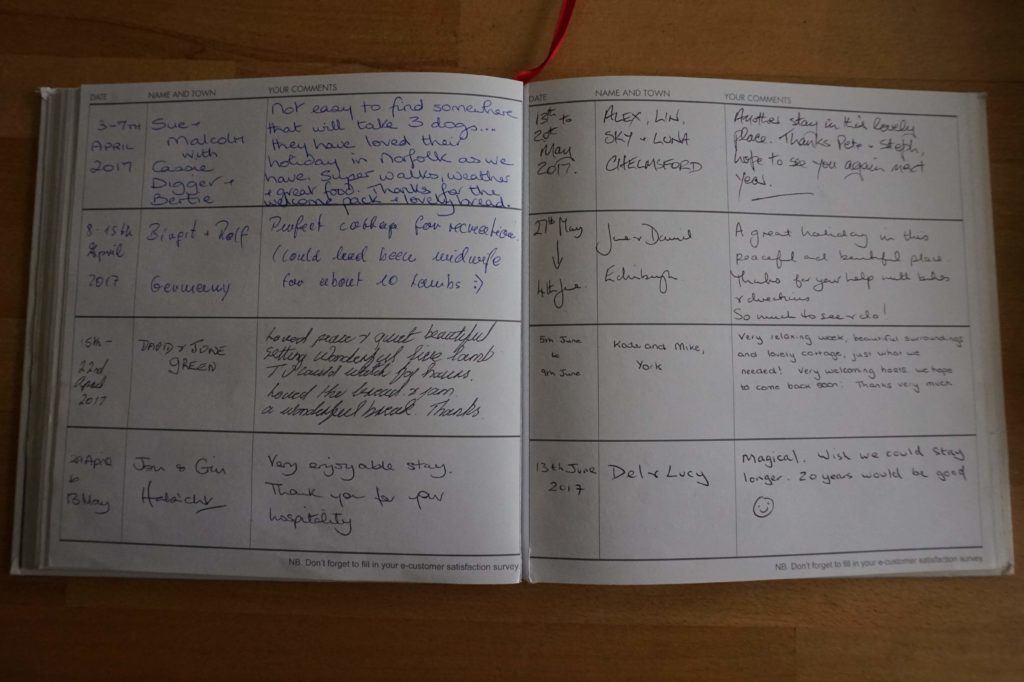 DATE NAME AND TOWN YOUR COMMENTS
3-7TH
APRIL
2017
Sue +
Malcolm
with
Cassie
Digger +
Bertie
Not easy to find somewhere
that will take 3 dogs....
they have loved their
holiday in Norfolk as we
have. Super walks, weather
+ great food. Thanks for the
welcome pack + lovely bread.
8-15th
April
2017
Birgit + Rolf
Germany
Perfect cottage for recreation.
(could had been midwife
for about 10 lambs :)
15th -
22nd
April
2017
DAVID + JUNE
GREEN
Loved peace + quiet beautiful
setting wonderful live lamb
TV could watch for hours.
Loved the bread + jam
a wonderful break. Thanks.
April
to
13 May
Jon & Gin
Very enjoyable stay.
Thank you for your
hospitality
NB. Don't forget to fill in your e-customer satisfaction survey
DATE NAME AND TOWN YOUR COMMENTS
13th to
20th
May
2017.
ALEX, LIN,
SKY + LUNA
CHELMSFORD
Another stay in this lovely
place. Thanks Pete + Steph,
hope to see you again next
year.
27th May
↓
4th June.
Jane + Daniel
Edinburgh
A great holiday in this
peaceful and beautiful place.
Thanks for your help with bikes
+ directions
So much to see + do!
5th June
to
9th June
Kade and Mike,
York
Very relaxing week, beautiful surroundings
and lovely cottage, just what we
needed! Very welcoming hosts. we hope
to come back soon. Thanks very much
13th June
2017
Del + Lucy
Magical. Wish we could stay
longer. 20 years would be good
NB. Don't forget to fill in your e-customer satisfaction survey